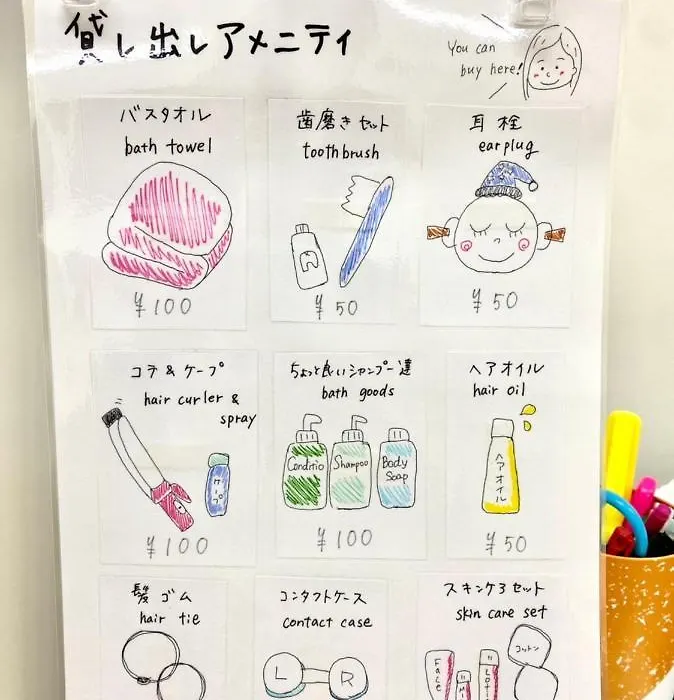 貸し出しアメニティ
You can
buy here!
バスタオル
bath towel
¥100
歯磨きセット
toothbrush
¥50
耳栓
earplug
¥50
コテ&ケープ
hair curler &
spray
ケープ
¥100
ちょっと良いシャンプー達
bath goods
Conditio
Shampoo
Body
Soap
¥100
ヘアオイル
hair oil
ヘアオイル
¥50
髪ゴム
hair tie
コンタクトケース
contact case
L
R
スキンケアセット
skin care set
Face
コットン